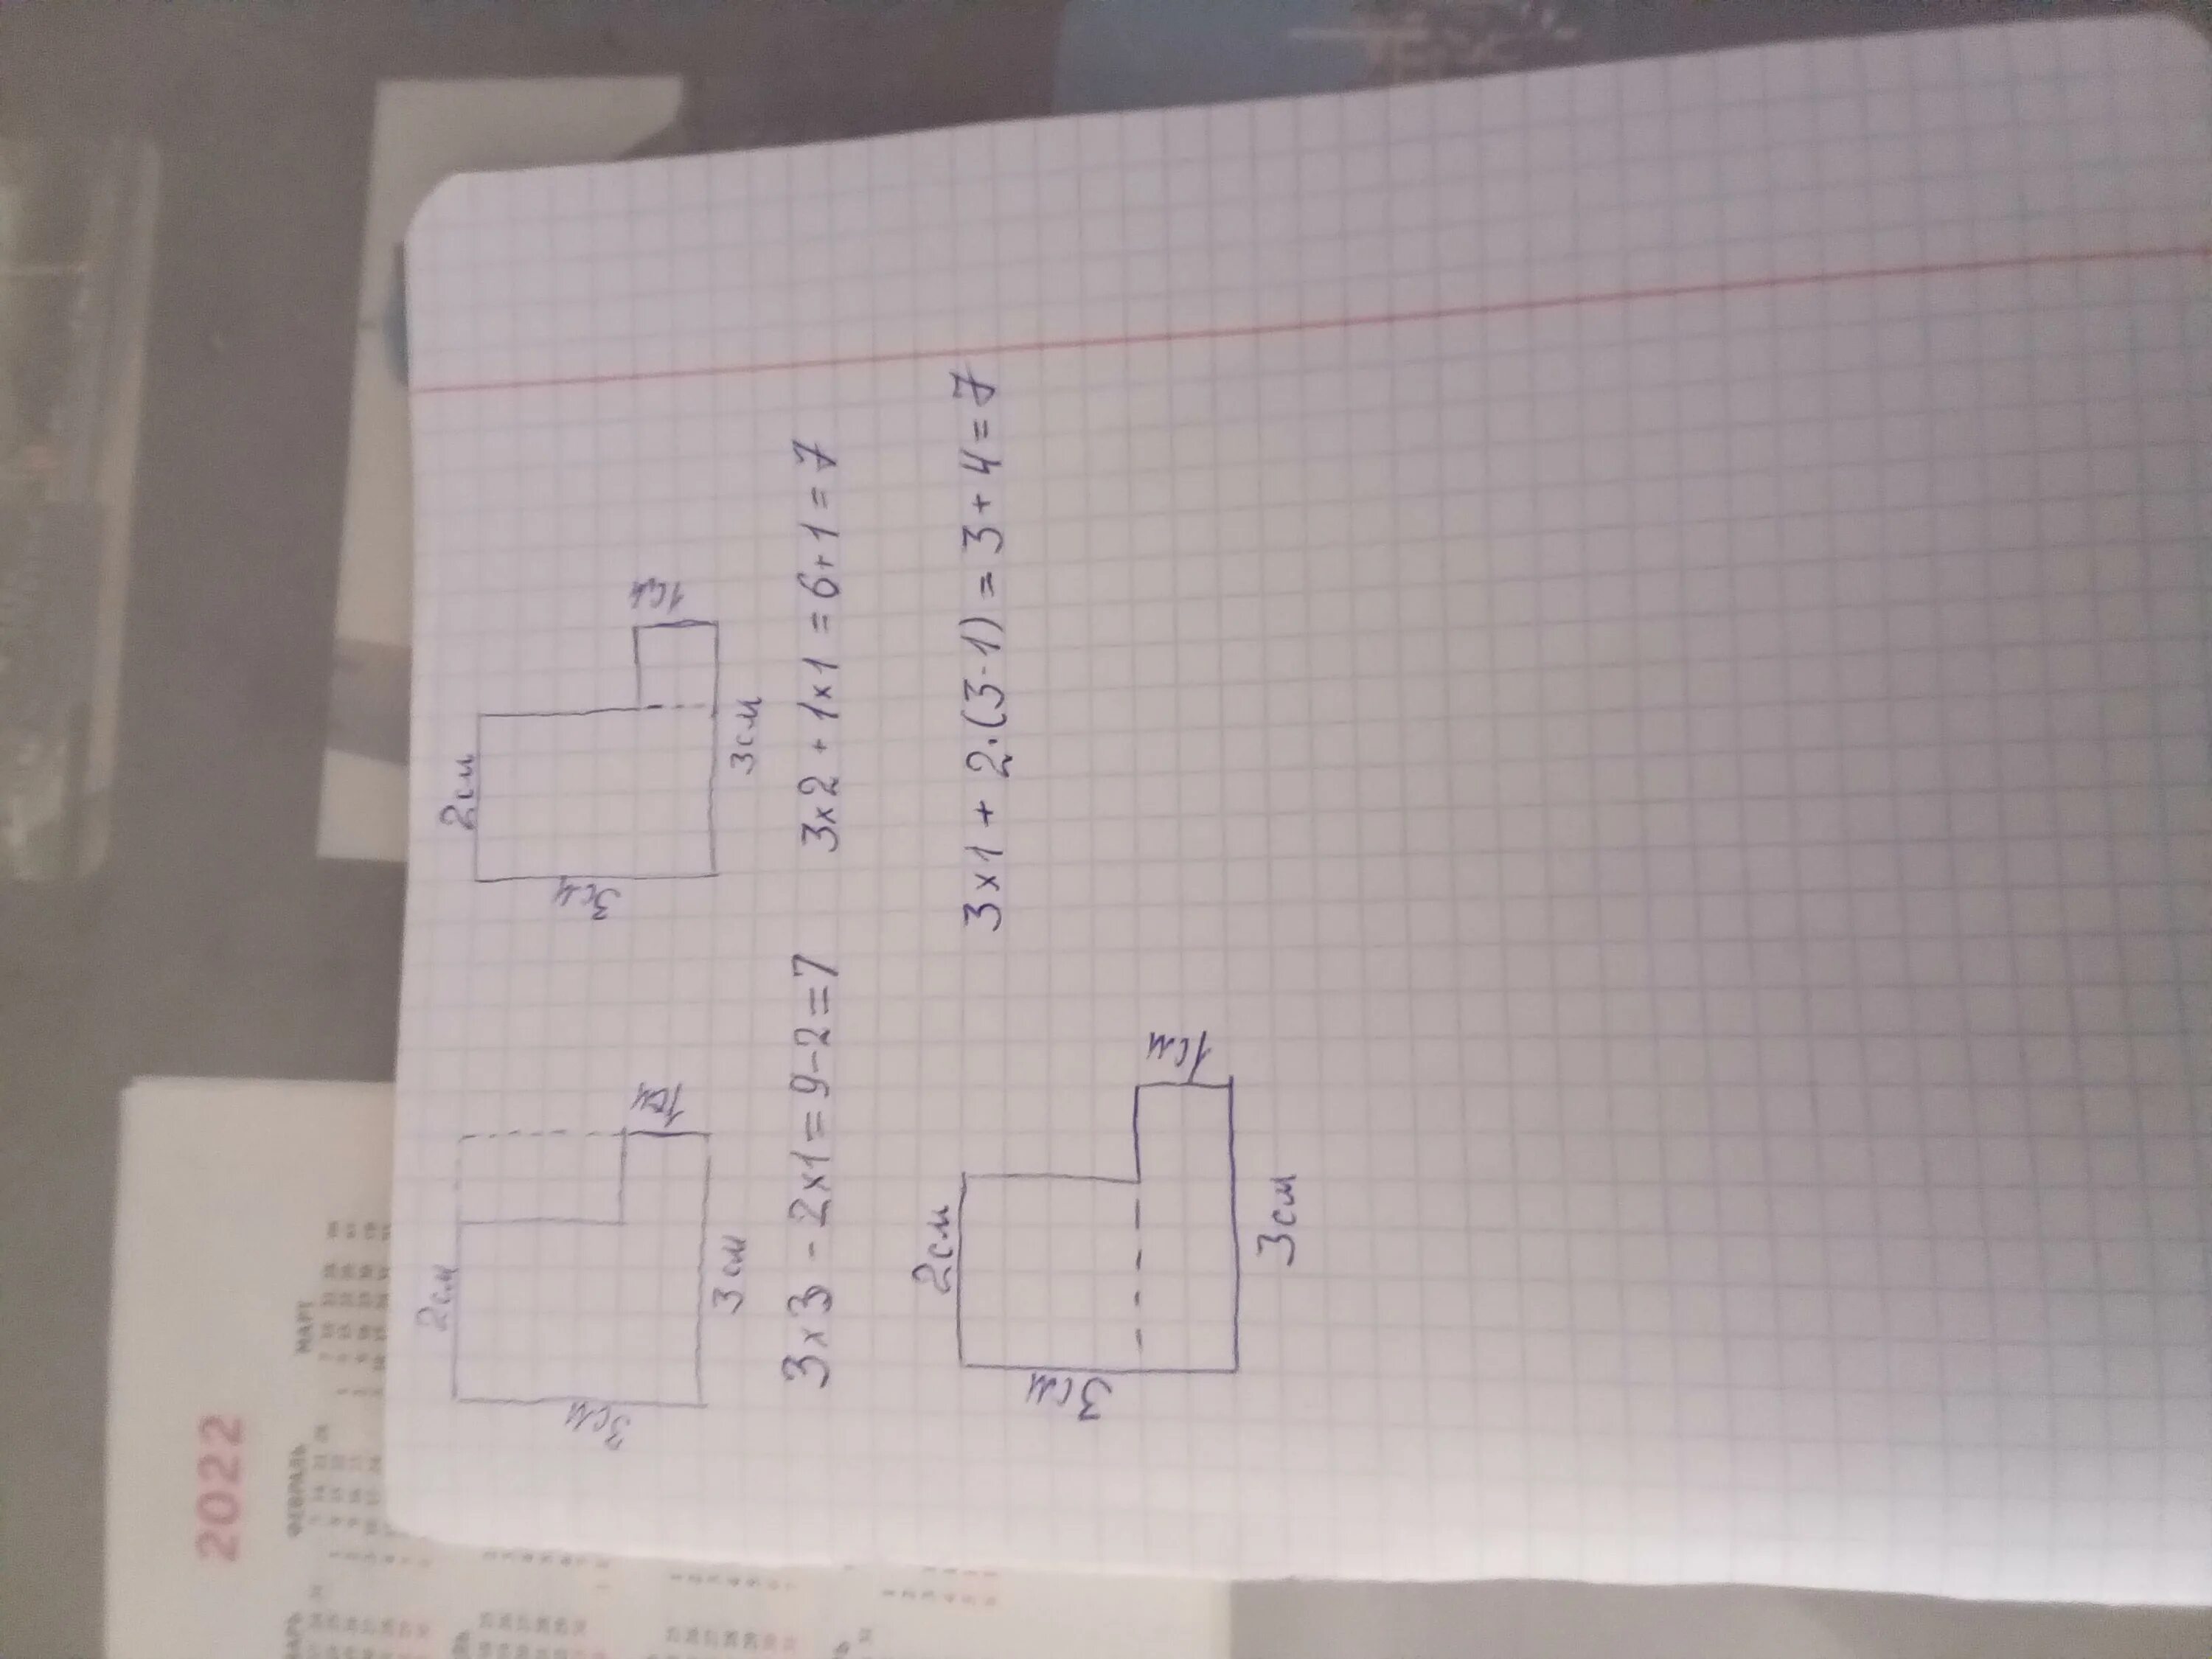 2см
3см
1см
3см
3x3 - 2x1 = 9-2=7
2см
3см
1см
3см
3x2 + 1x1 = 6+1 = 7
2см
3см
1см
3см
3x1 + 2·(3-1) = 3+4=7
2022
ФЕВРАЛЬ
МАРТ